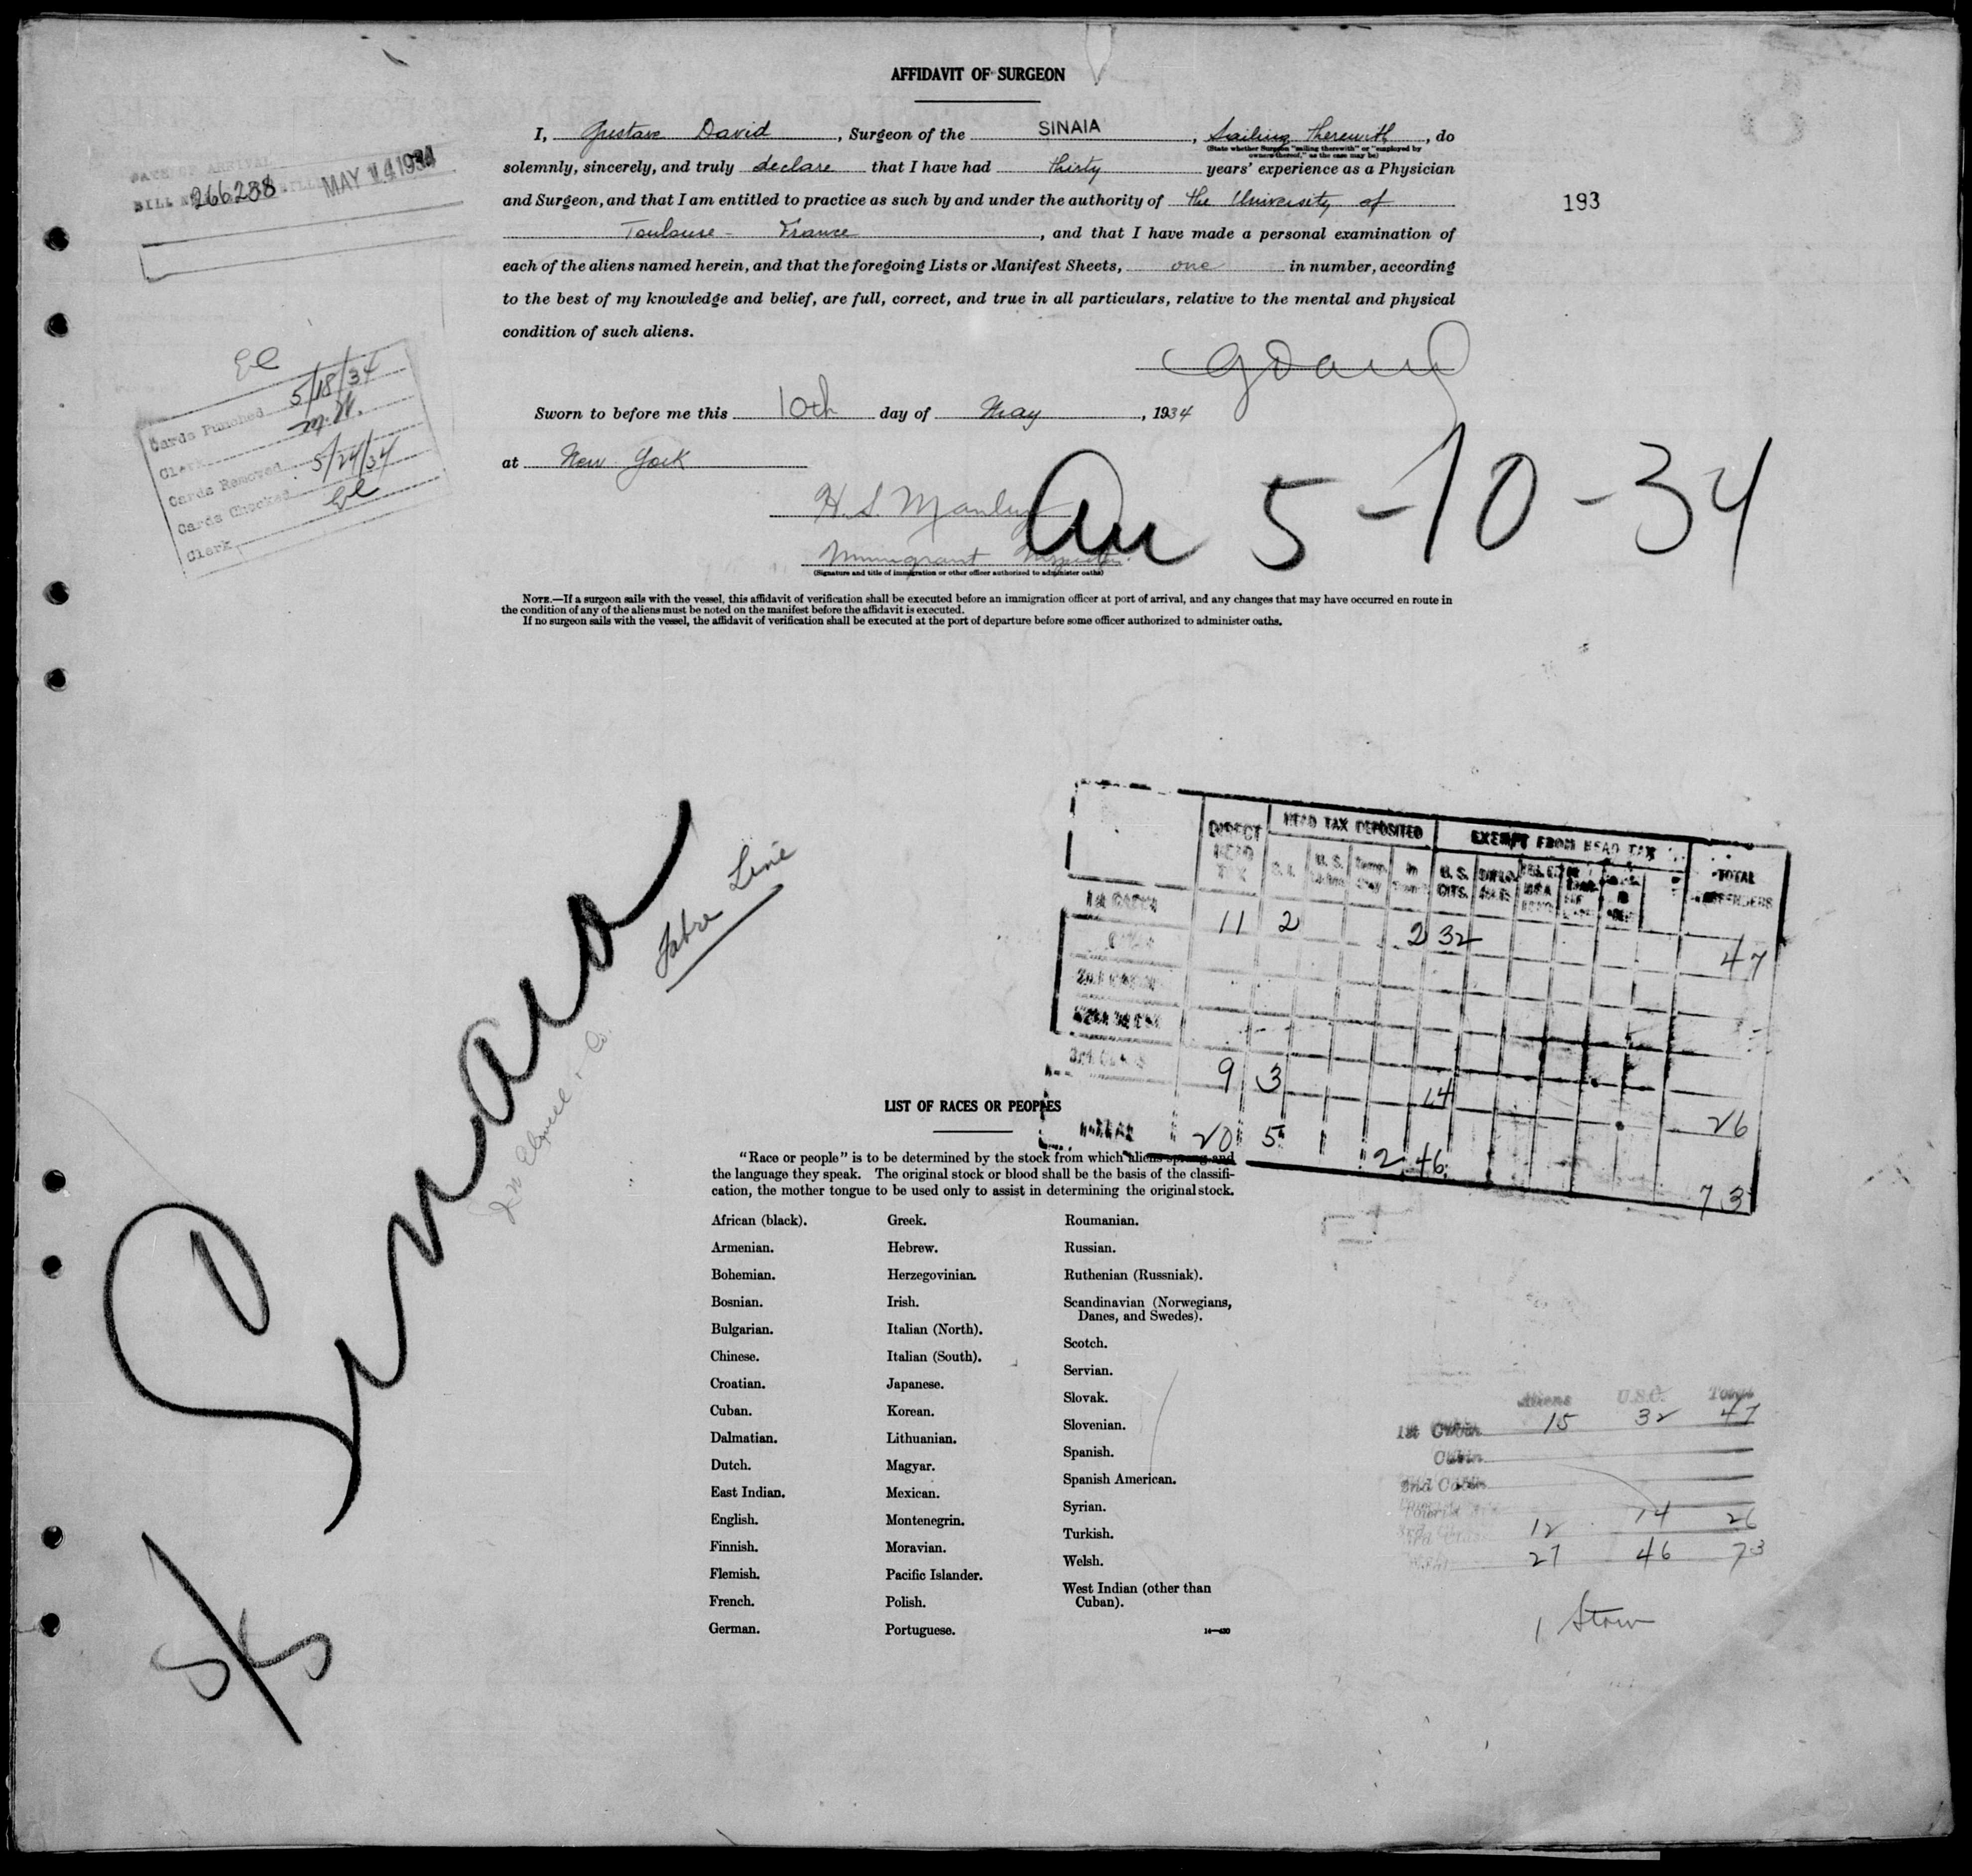 AFFIDAVIT OF SURGEON
I, Gustave David, Surgeon of the SINAIA, sailing therewith, do
(State whether Surgeon "sailing therewith" or "employed by
owners thereof," as the case may be)
solemnly, sincerely, and truly declare that I have had thirty years' experience as a Physician
and Surgeon, and that I am entitled to practice as such by and under the authority of the University of
Toulouse - France, and that I have made a personal examination of
each of the aliens named herein, and that the foregoing Lists or Manifest Sheets, one in number, according
to the best of my knowledge and belief, are full, correct, and true in all particulars, relative to the mental and physical
condition of such aliens.
GDavid
Sworn to before me this 10th day of May, 1934
at New York
H. S. Manley
Immigrant Inspector
(Signature and title of immigration or other officer authorized to administer oaths)
5-10-34
NOTE.—If a surgeon sails with the vessel, this affidavit of verification shall be executed before an immigration officer at port of arrival, and any changes that may have occurred en route in
the condition of any of the aliens must be noted on the manifest before the affidavit is executed.
If no surgeon sails with the vessel, the affidavit of verification shall be executed at the port of departure before some officer authorized to administer oaths.
193
DATE OF ARRIVAL
BILL 266288 MAY 14 1934
El
Cards Punched 5/18/34
Clerk M.W.
Cards Removed
Cards Checked 5/24/34
Clerk El
Sinaia
Fabre Line
S/S
DIRECT HEAD TAX
HEAD TAX DEPOSITED
EXEMPT FROM HEAD TAX
TOTAL
S. I.
U. S.
In
U. S. CITS.
1st CABIN 11 2 2 32 47
3rd CLASS 9 3 14 26
TOTAL 20 5 2 46 73
LIST OF RACES OR PEOPLES
"Race or people" is to be determined by the stock from which aliens sprang and
the language they speak. The original stock or blood shall be the basis of the classifi-
cation, the mother tongue to be used only to assist in determining the original stock.
African (black).
Armenian.
Bohemian.
Bosnian.
Bulgarian.
Chinese.
Croatian.
Cuban.
Dalmatian.
Dutch.
East Indian.
English.
Finnish.
Flemish.
French.
German.
Greek.
Hebrew.
Herzegovinian.
Irish.
Italian (North).
Italian (South).
Japanese.
Korean.
Lithuanian.
Magyar.
Mexican.
Montenegrin.
Moravian.
Pacific Islander.
Polish.
Portuguese.
Roumanian.
Russian.
Ruthenian (Russniak).
Scandinavian (Norwegians,
Danes, and Swedes).
Scotch.
Servian.
Slovak.
Slovenian.
Spanish.
Spanish American.
Syrian.
Turkish.
Welsh.
West Indian (other than
Cuban).
14—430
Aliens U.S.C. Total
1st Cabin 15 32 47
Cabin
2nd Cabin
12 14 26
27 46 73
1 Stow